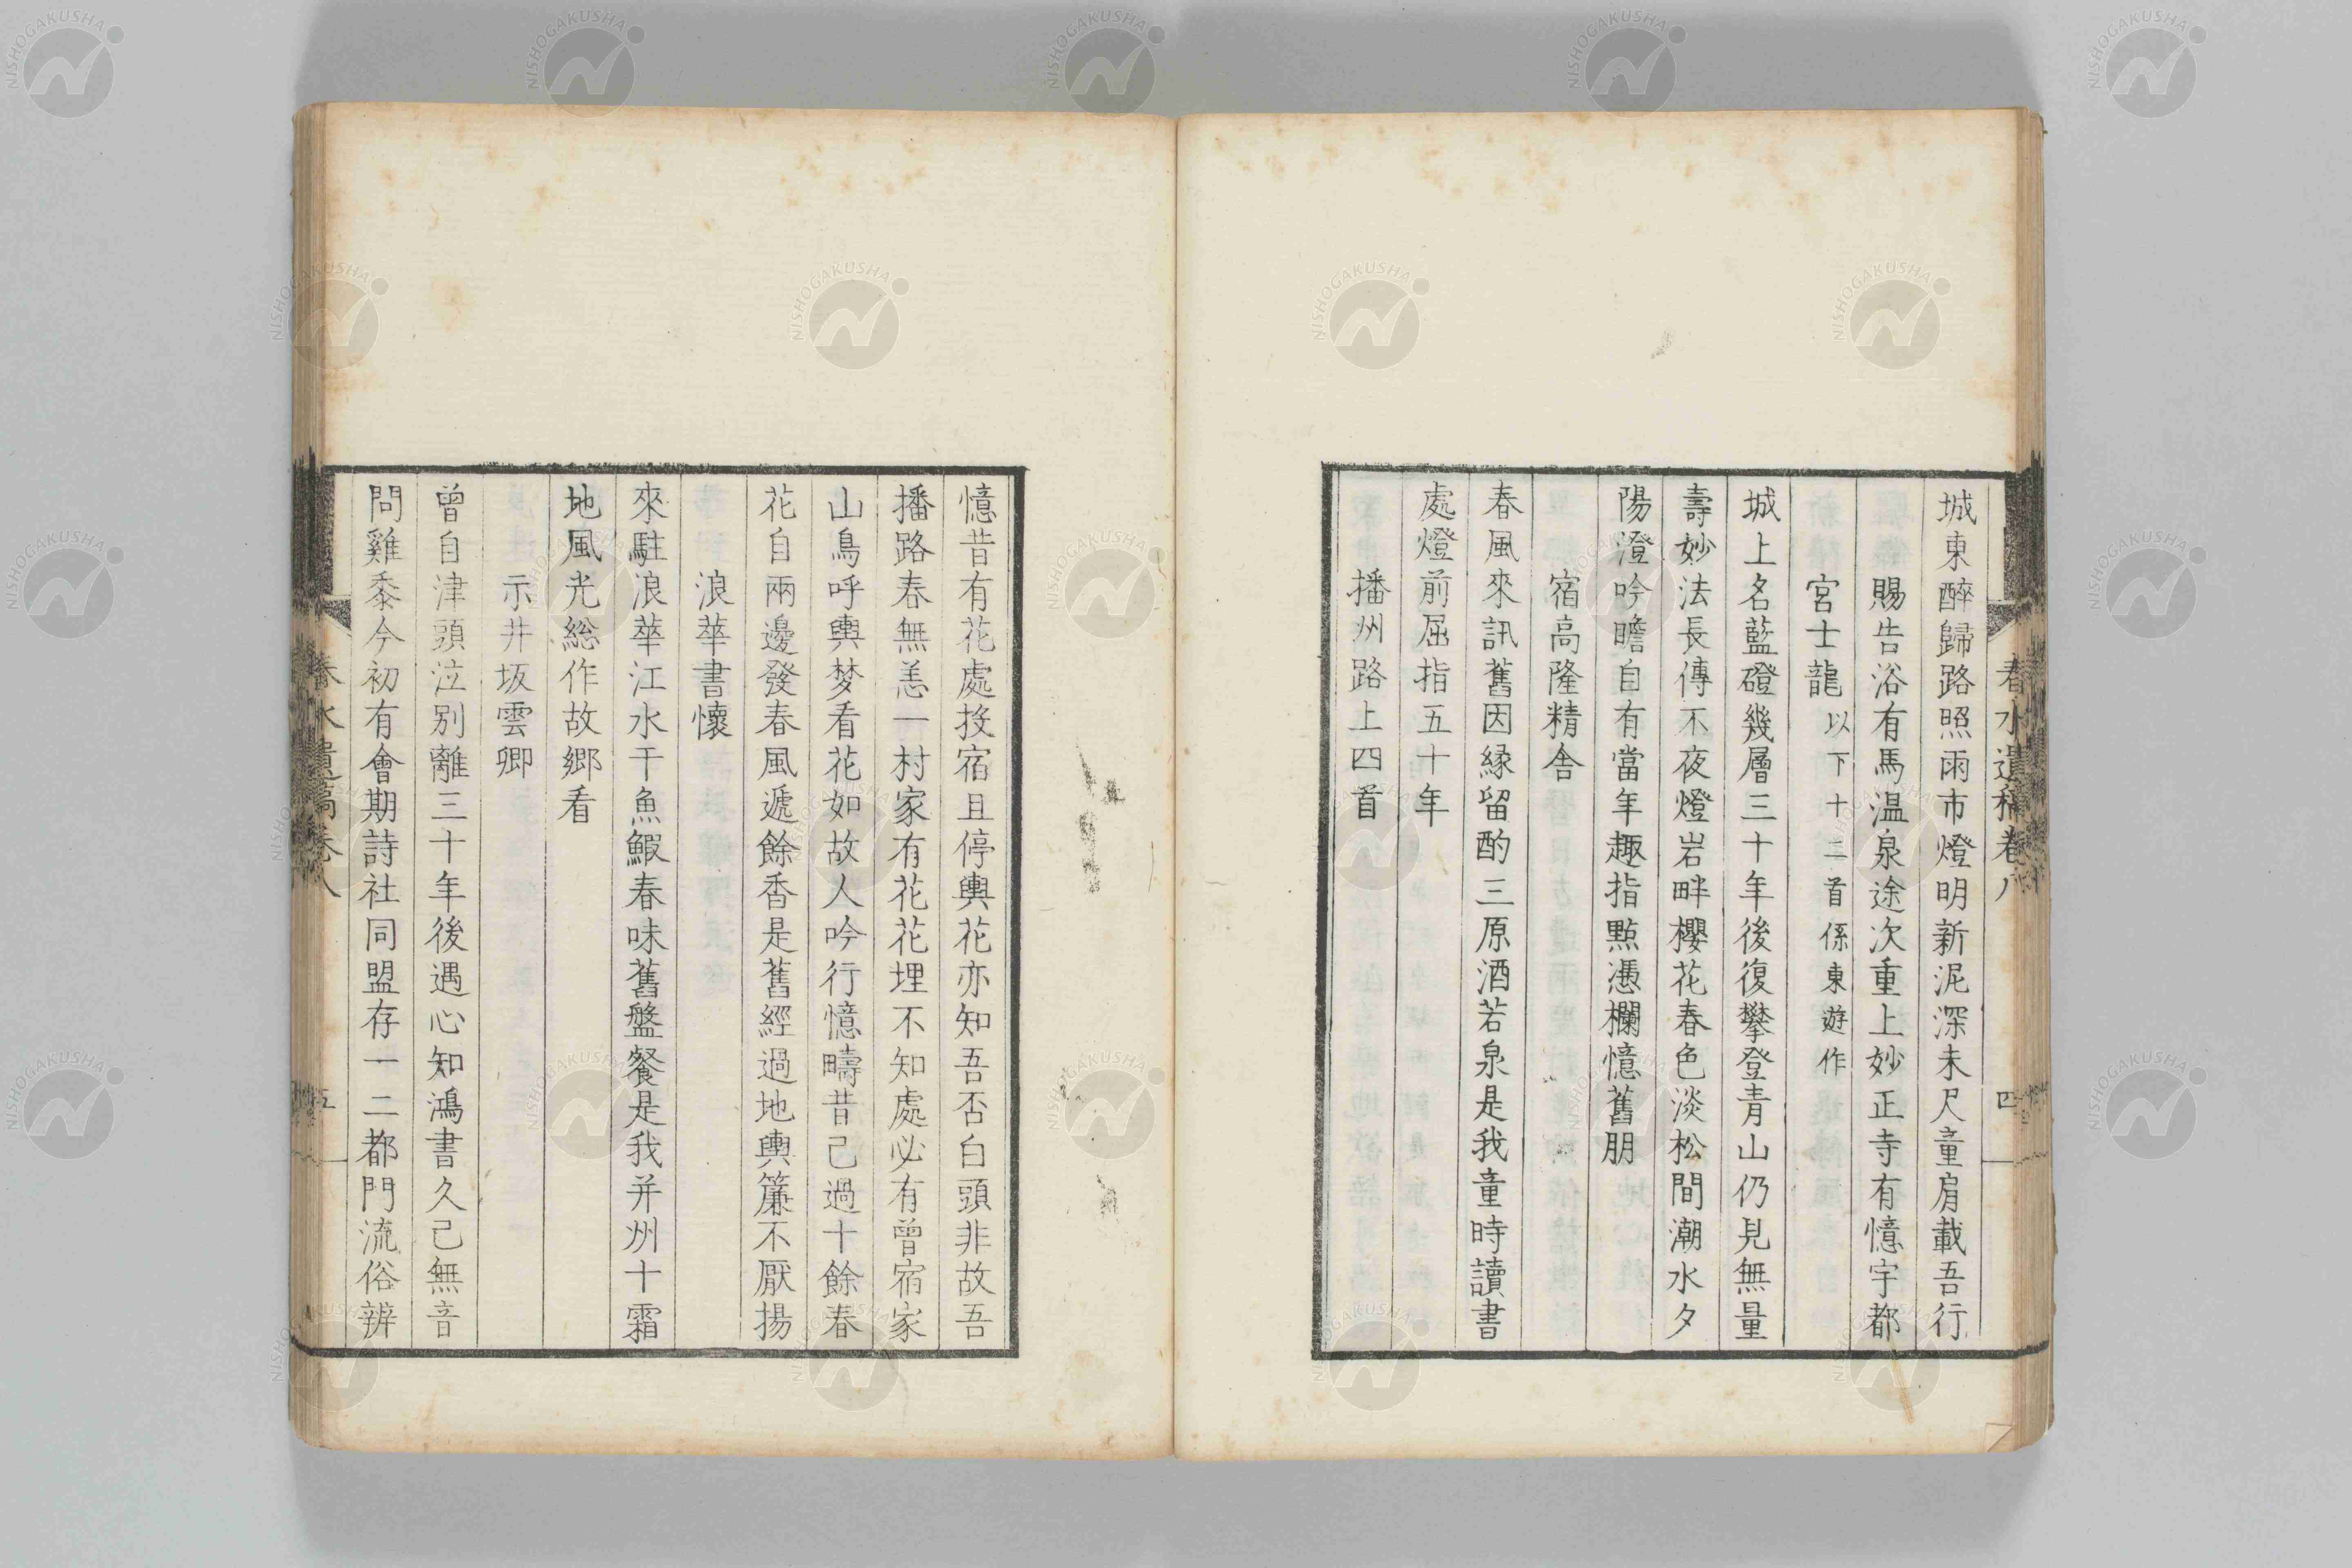 城東醉歸路照雨市燈明新泥深未尺童肩載吾行
賜告浴有馬温泉途次重上妙正寺有憶宇都
宮士龍以下十二首係東遊作
城上名藍磴幾層三十年後復攀登青山仍見無量
壽妙法長傳不夜燈岩畔櫻花春色淡松間潮水夕
陽澄吟瞻自有當年趣指點憑欄憶舊朋
宿高隆精舎
春風來訊舊因縁留酌三原酒若泉是我童時讀書
處燈前屈指五十年
播州路上四首
春水遺稿卷八
四
憶昔有花處投宿且停輿花亦知吾否白頭非故吾
播路春無恙一村家有花花埋不知處必有曾宿家
山鳥呼輿梦看花如故人吟行憶疇昔已過十餘春
花自兩邊發春風遞餘香是舊經過地輿簾不厭揚
浪華書懷
來駐浪華江水干魚鰕春味舊盤餐是我并州十霜
地風光総作故郷看
示井坂雲卿
曾自津頭泣別離三十年後遇心知鴻書久已無音
問雞黍今初有會期詩社同盟存一二都門流俗辨
春水遺稿卷八
五
NISHOGAKUSHA